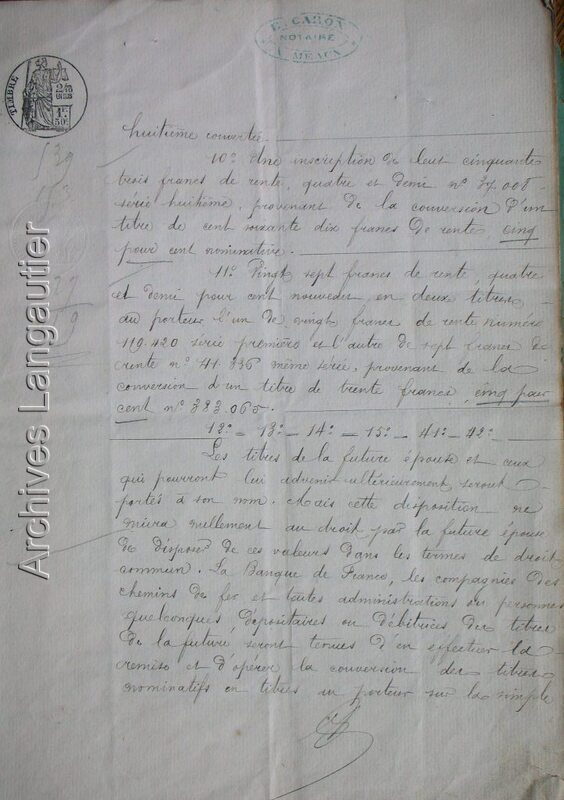 E. CARON
NOTAIRE
A MEAUX
TIMBRE
2/10 EN SUS
1F. 50C.
huitième convertie.
10° Une inscription de cent cinquante
trois francs de rente, quatre et demi n° 37.008
série huitième, provenant de la conversion d'un
titre de cent soixante dix francs de rente cinq
pour cent nominative.
11° Vingt sept francs de rente, quatre
et demi pour cent nouveau, en deux titres
au porteur l'un de vingt francs de rente numéro
119.420 série première et l'autre de sept francs de
rente n° 41.336 même série, provenant de la
conversion d'un titre de trente francs, cinq pour
cent n° 383.065.
12° _ 13° _ 14° _ 15° _ 41° _ 42°
Les titres de la future épouse et ceux
qui pourront lui advenir ultérieurement seront
portés à son nom. Mais cette disposition ne
nuira nullement au droit par la future épouse
de disposer de ces valeurs dans les termes de droit
commun. La Banque de France, les compagnies des
chemins de fer et toutes administrations ou personnes
quelconques, dépositaires ou débitrices des titres
de la future, seront tenues d'en effectuer la
remise et d'opérer la conversion des titres
nominatifs en titres au porteur sur la simple
Archives Langautier